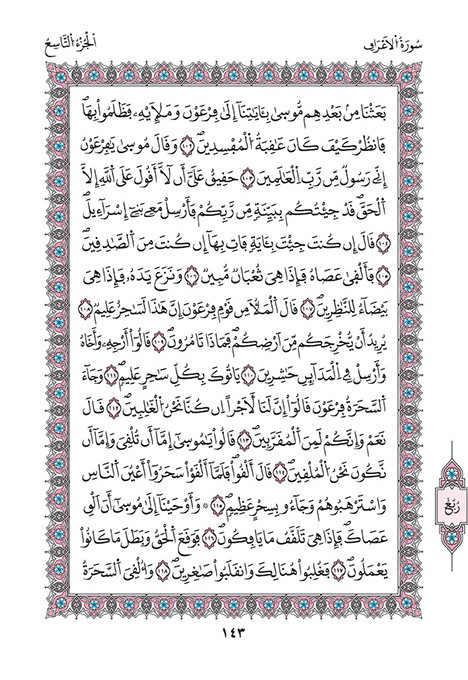 سُورَةُ الاَعْرَافِ
الْجُزْءُ التَّاسِعُ
بَعَثْنَا مِنۢ بَعْدِهِم مُّوسَىٰ بِـَٔايَٰتِنَآ إِلَىٰ فِرْعَوْنَ وَمَلَإِيْهِۦ فَظَلَمُواْ بِهَاۖ
فَانظُرْ كَيْفَ كَانَ عَٰقِبَةُ اُ۬لْمُفْسِدِينَۖ ١٠٢ وَقَالَ مُوسَىٰ يَٰفِرْعَوْنُ
إِنِّے رَسُولٞ مِّن رَّبِّ اِ۬لْعَٰلَمِينَ ١٠٣ حَقِيقٌ عَلَيَّ أَن لَّآ أَقُولَ عَلَى اَ۬للَّهِ إِلَّا
اَ۬لْحَقَّۖ قَدْ جِئْتُكُم بِبَيِّنَةٖ مِّن رَّبِّكُمْ فَأَرْسِلْ مَعِے بَنِےٓ إِسْرَآءِيلَۖ
١٠٤ قَالَ إِن كُنتَ جِئْتَ بِـَٔايَةٖ فَاتِ بِهَآ إِن كُنتَ مِنَ اَ۬لصَّٰدِقِينَۖ
١٠٥ فَأَلْقَىٰ عَصَاهُ فَإِذَا هِيَ ثُعْبَانٞ مُّبِينٞۖ ١٠٦ وَنَزَعَ يَدَهُۥ فَإِذَا هِيَ
بَيْضَآءُ لِلنَّٰظِرِينَۖ ١٠٧ قَالَ اَ۬لْمَلَأُ مِن قَوْمِ فِرْعَوْنَ إِنَّ هَٰذَا لَسَٰحِرٌ عَلِيمٞ ١٠٨
يُرِيدُ أَنْ يُّخْرِجَكُم مِّنَ اَرْضِكُمْۖ فَمَاذَا تَامُرُونَۖ ١٠٩ قَالُوٓاْ أَرْجِهِۦ وَأَخَاهُ
وَأَرْسِلْ فِے اِ۬لْمَدَآئِنِ حَٰشِرِينَ ١١٠ يَاتُوكَ بِكُلِّ سَٰحِرٍ عَلِيمٖۖ ١١١ وَجَآءَ
اَ۬لسَّحَرَةُ فِرْعَوْنَ قَالُوٓاْ إِنَّ لَنَا لَأَجْراً اِن كُنَّا نَحْنُ اُ۬لْغَٰلِبِينَۖ ١١٢ قَالَ
نَعَمْ وَإِنَّكُمْ لَمِنَ اَ۬لْمُقَرَّبِينَۖ ١١٣ قَالُواْ يَٰمُوسَىٰٓ إِمَّآ أَن تُلْقِيَ وَإِمَّآ أَن
نَّكُونَ نَحْنُ اُ۬لْمُلْقِينَۖ ١١٤ قَالَ أَلْقُواْۖ فَلَمَّآ أَلْقَوْاْ سَحَرُوٓاْ أَعْيُنَ اَ۬لنَّاسِ
وَاسْتَرْهَبُوهُمْ وَجَآءُو بِسِحْرٍ عَظِيمٖۖ ١١٥ وَأَوْحَيْنَآ إِلَىٰ مُوسَىٰٓ أَنَ اَلْقِ
عَصَاكَۖ فَإِذَا هِيَ تَلَقَّفُ مَا يَافِكُونَۖ ١١٦ فَوَقَعَ اَ۬لْحَقُّ وَبَطَلَ مَا كَانُواْ
يَعْمَلُونَۖ ١١٧ فَغُلِبُواْ هُنَالِكَ وَانقَلَبُواْ صَٰغِرِينَۖ ١١٨ وَأُلْقِيَ اَ۬لسَّحَرَةُ
رُبُعْ
١٤٣